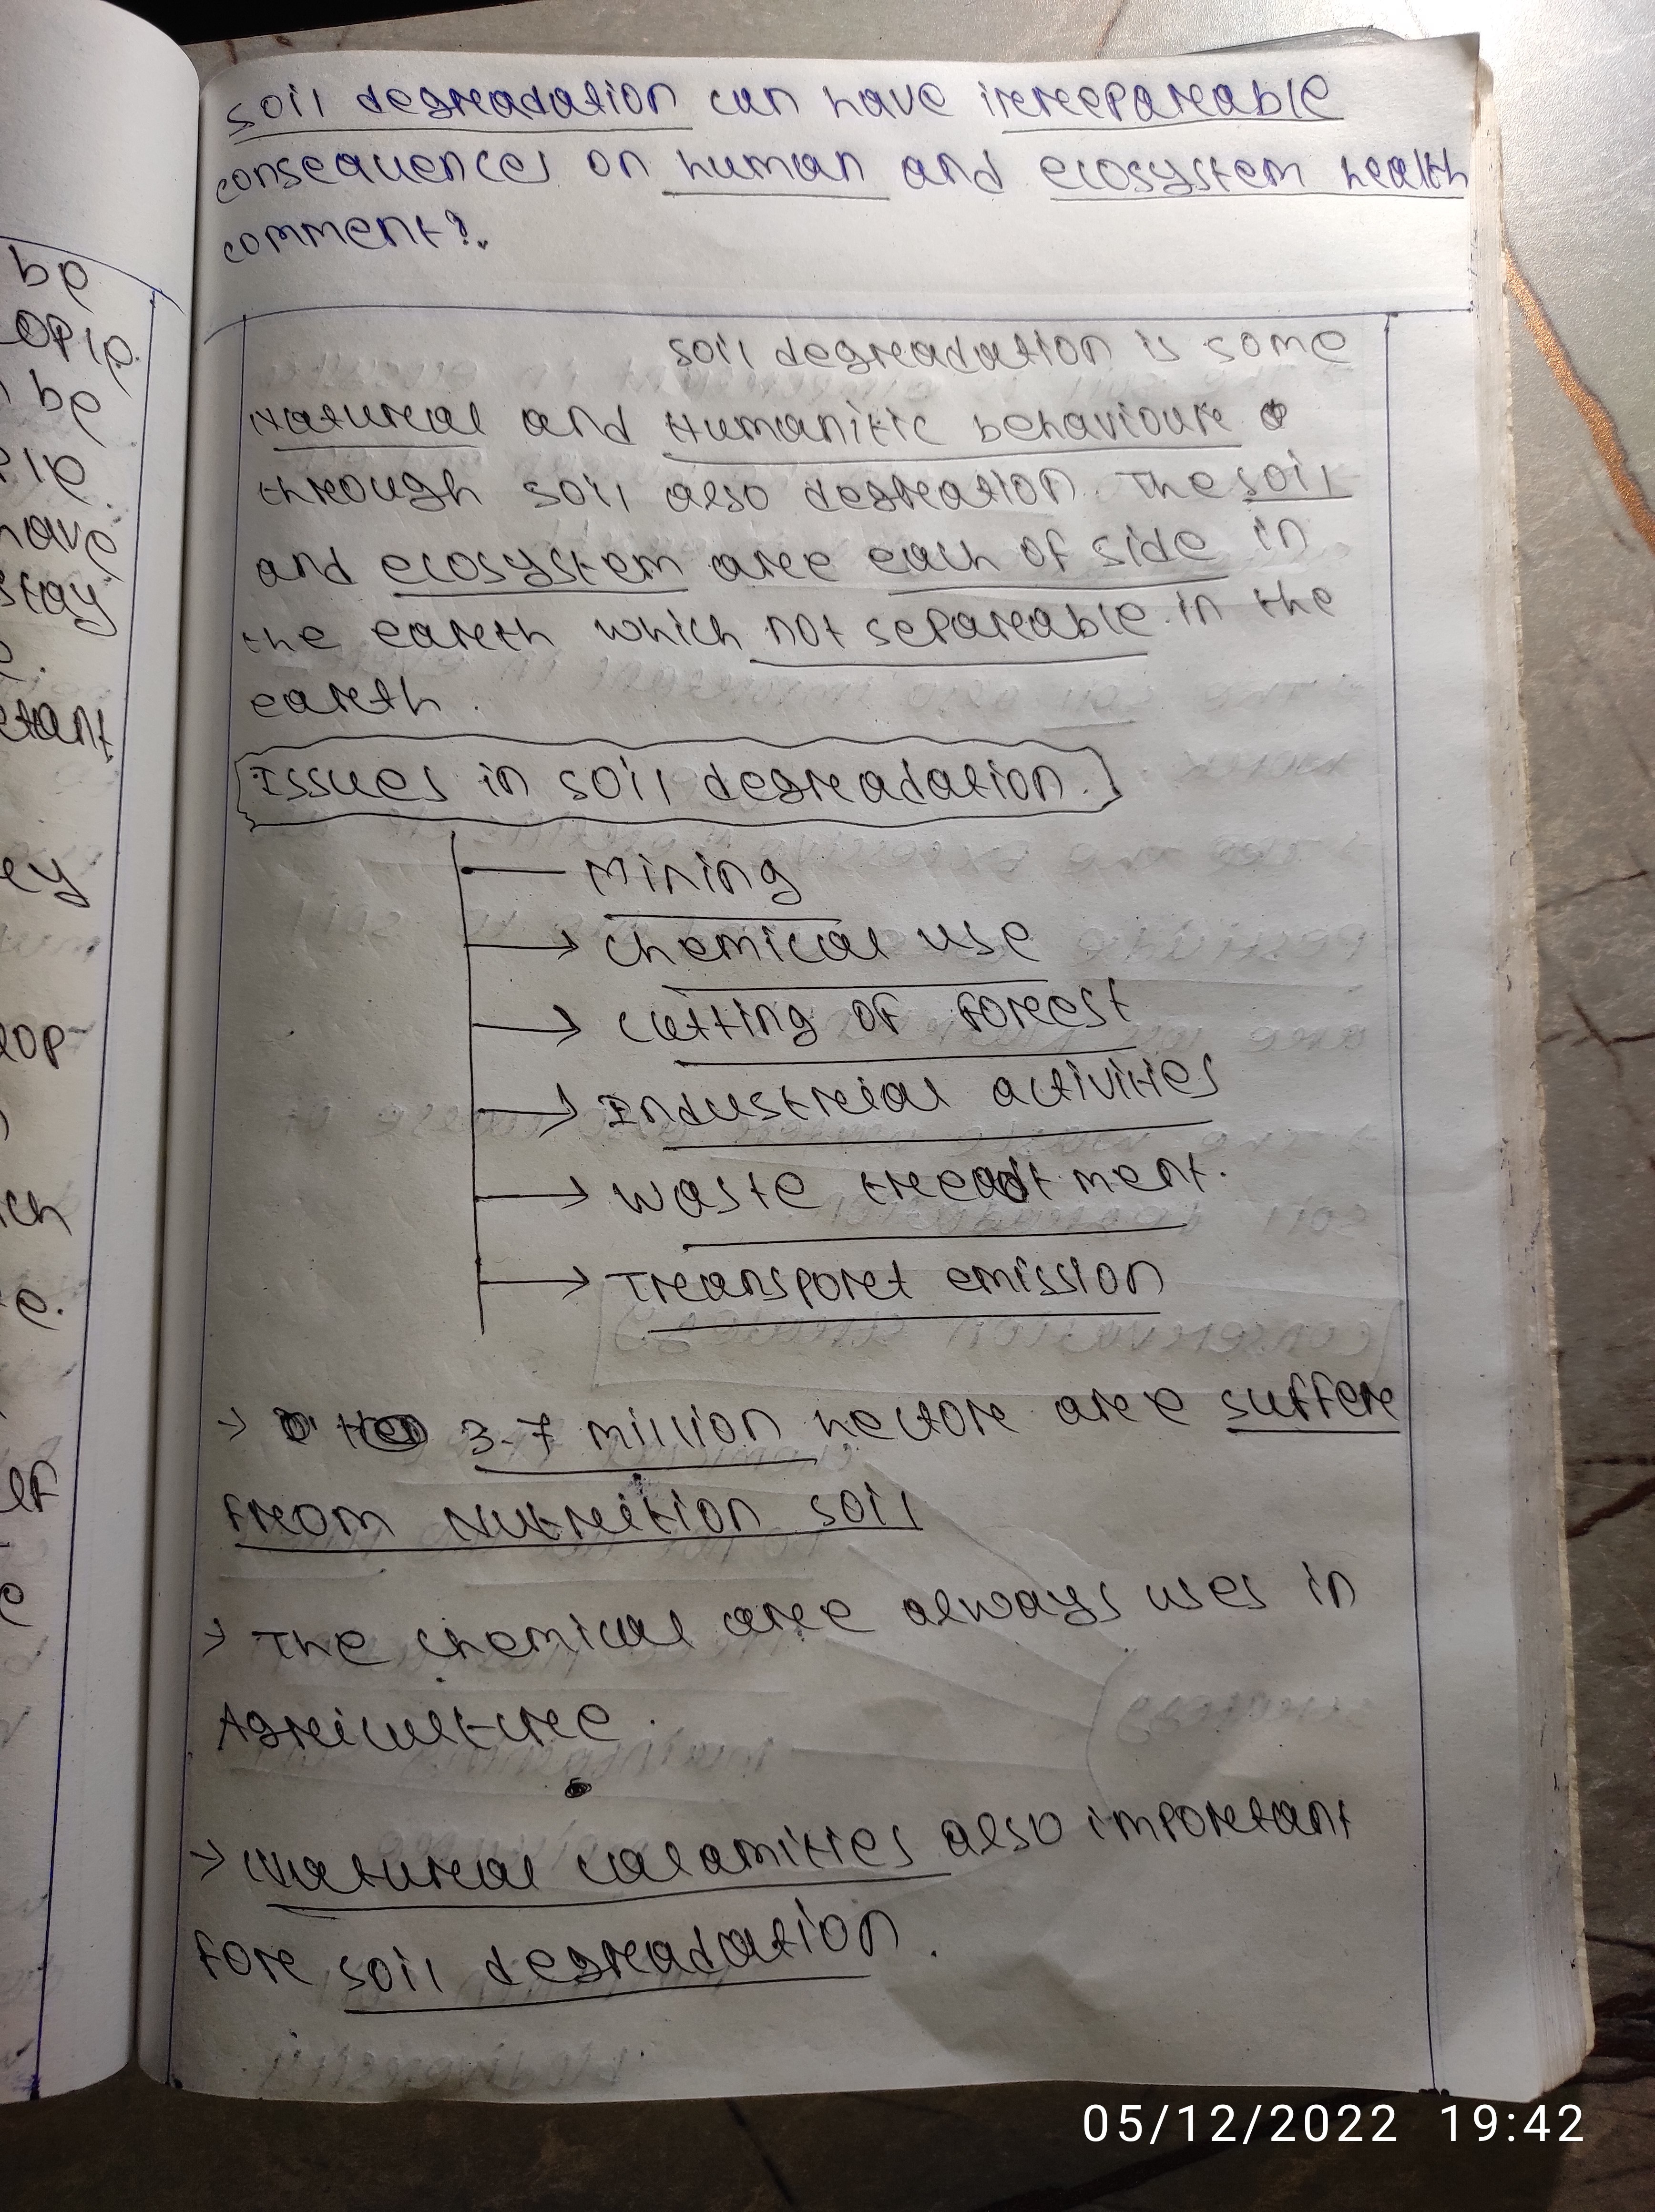 soil degreadation can have irreepareable
consequences on human and ecosystem health
comment?.
soil degreadation is some
Natureal and Humanitic behavioure
through soil also degreation. The soil
and ecosystem aree each of side in
the eareth which not sepaeable in the
eareth.
Issues in soil degreadation.
Mining
chemical use
cutting of foreest
Industreial activities
waste treeatment.
Treansporet emission
→ 3.7 million hectore aree suffere
from Nutreition soil
→ The chemical aree always uses in
Agreiculturee.
→ Natureal calamities also imporetant
fore soil degreadation.
be
ople.
be
ple
have
stay
ey
lop-
ich
e.
05/12/2022 19:42